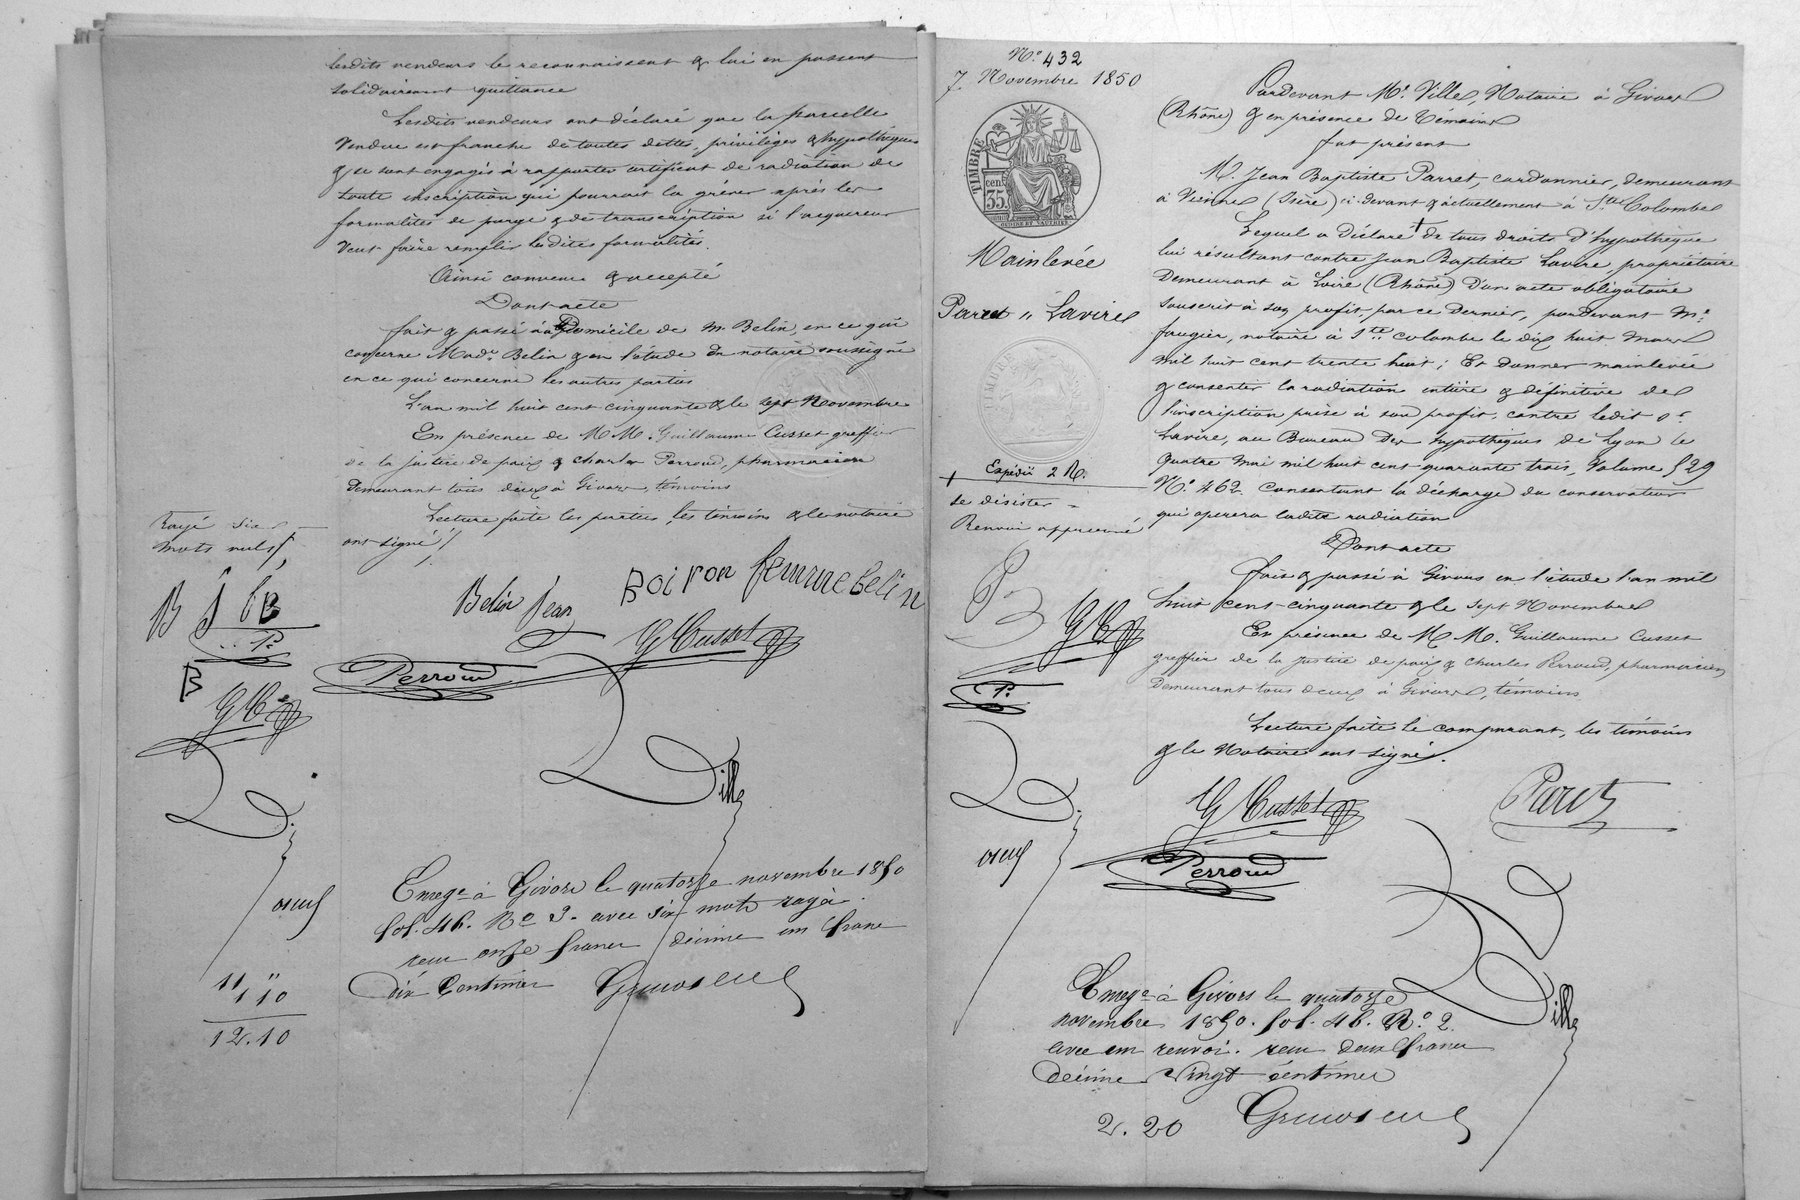 lesdits vendeurs le reconnaissent & lui en passent
solidairement quittance
Lesdits vendeurs ont déclaré que la parcelle
Vendue est franche de toutes dettes, privilèges & hypothèques
& se sont engagés à rapporter certificat de radiation de
toute inscription qui pourrait la gréver après les
formalités de purge & de transcription si l'acquereur
Veut faire remplir lesdites formalités.
Ainsi convenu & accepté
Dont acte
fait & passé au Domicile de M. Belin, en ce qui
concerne Made. Belin & en l'étude du notaire soussigné
en ce qui concerne les autres parties
L'an mil huit cent cinquante & le sept Novembre
En présence de MM. Guillaume Cusset greffier
de la justice de paix & Charles Perroud, pharmacien
Demeurant tous deux à Givors, témoins
Lecture faite les parties, les témoins & le notaire
ont signé
Rayé six
mots nuls
B J b B
P.
B
G C
Belin Jean
Boiron femme belin
G Cusset
Perroud
Ville
Enregé à Givors le quatorze novembre 1850
fol. 46. Ro 3. avec six mots rayés.
reçu onze francs décime un franc
dix Centimes
11 "
1 10
12.10
No. 432
7 Novembre 1850
TIMBRE
cen.
35.
Mainlevée
Parret " Lavire
TIMBRE
Expédié 2 R.
+
se désister
Renvoi approuvé
P
G C
P.
Pardevant Me. Ville, Notaire à Givors
(Rhône) & en présence de Témoins
fut présent
M. Jean Baptiste Parret, cordonnier, demeurant
à Vienne (Isère) ci-devant & actuellement à Ste. Colombe
Lequel a déclaré + de tous droits d'hypothèque
lui résultant contre Jean Baptiste Lavire, propriétaire
Demeurant à Loire (Rhône) D'un acte obligatoire
souscrit à son profit, par ce Dernier, pardevant Me.
faugier, notaire à Ste. Colombe le dix huit mars
mil huit cent trente huit; Et donner mainlevée
& consentir la radiation entière & définitive de
l'inscription prise à son profit, contre ledit Sr.
Lavire, au Bureau Des hypothèques de Lyon le
quatre mai mil huit cent quarante trois, Volume 529
No. 462. Consentant la décharge du conservateur
qui opèrera ladite radiation
Dont acte
fait & passé à Givors en l'étude l'an mil
huit cent-cinquante & le sept Novembre
En présence de MM. Guillaume Cusset
greffier de la justice de paix & Charles Perroud, pharmacien
Demeurant tous deux à Givors, témoins
Lecture faite le comparant, les témoins
& le Notaire ont signé.
G Cusset
Paret
Perroud
Ville
Enregé à Givors le quatorze
novembre 1850. fol. 46. Ro. 2.
avec un renvoi. reçu deux francs
décime Vingt centimes
2. 20